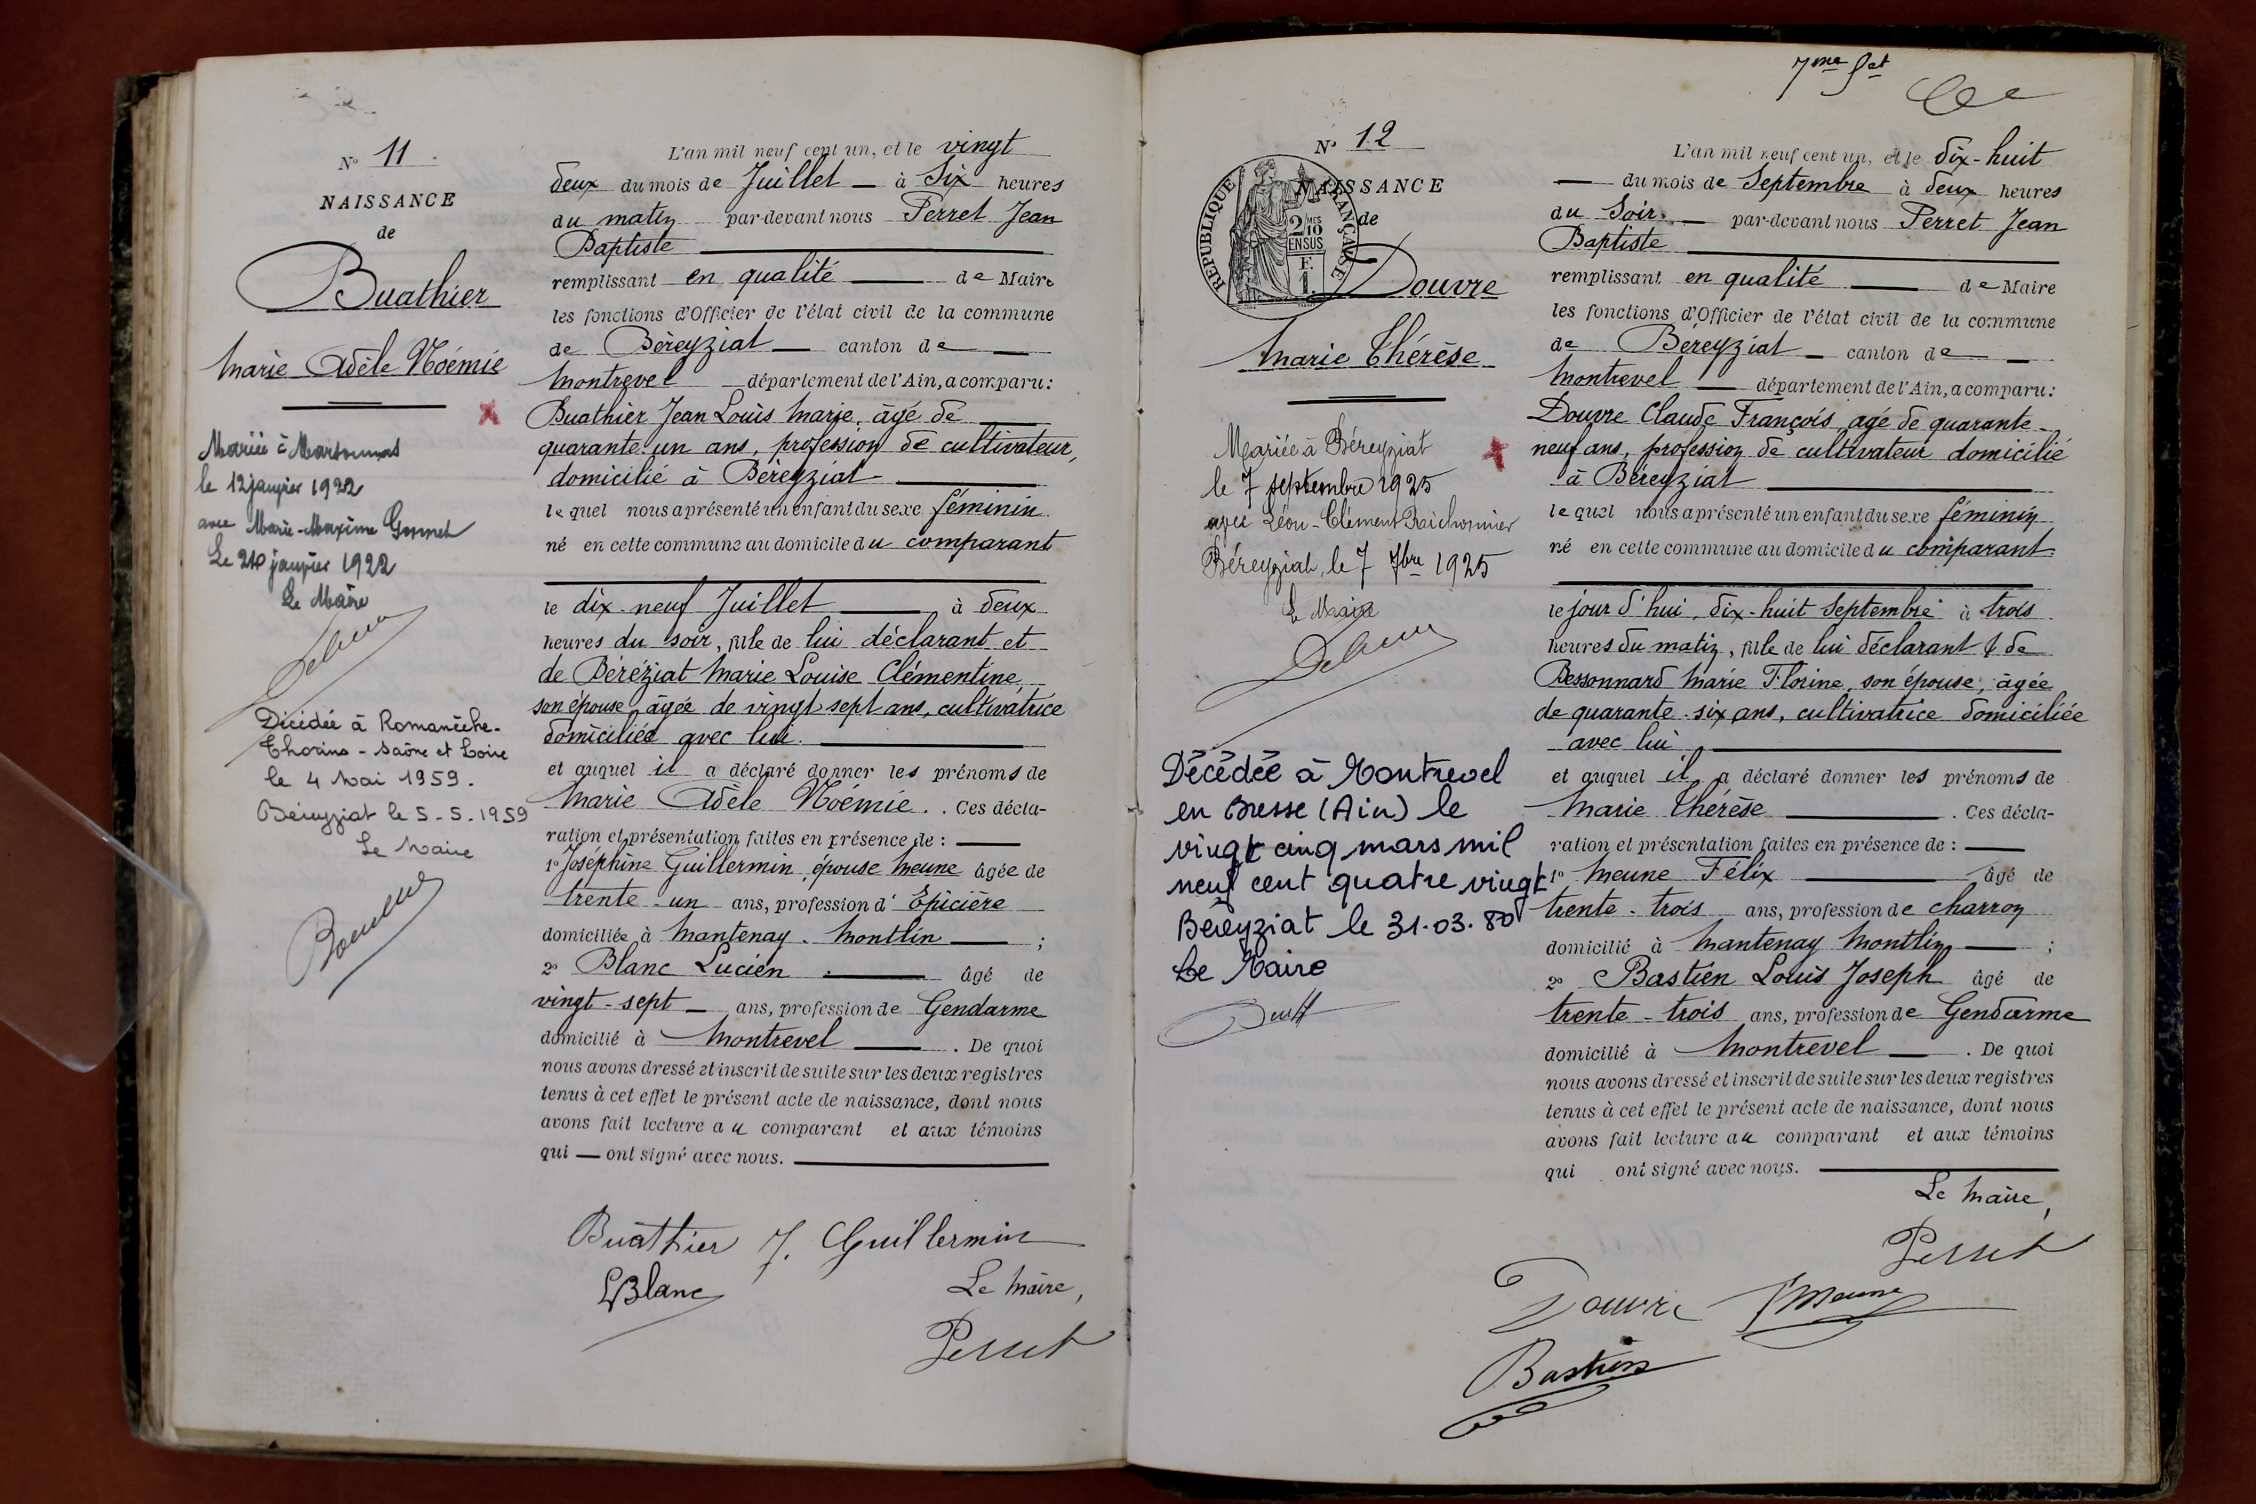 N° 11
NAISSANCE
de
Buathier
Marie Adèle Noémie
Mariée à Marsonnas
le 12 janvier 1922
avec Marie-Maxime Gonnet
Le 20 janvier 1922
Le Maire
Décédée à Romanèche-
Thorins - Saône et Loire
le 4 Mai 1959.
Béreyziat le 5-5-1959
Le Maire
L'an mil neuf cent un, et le vingt
deux du mois de Juillet — à Six heures
du matin par-devant nous Perret Jean
Baptiste
remplissant en qualité — de Maire
les fonctions d'Officier de l'état civil de la commune
de Béreyziat — canton de —
Montrevel — département de l'Ain, a comparu :
Buathier Jean Louis Marie, âgé de
quarante-un ans, profession de cultivateur,
domicilié à Béreyziat
lequel nous a présenté un enfant du sexe féminin
né en cette commune au domicile du comparant
le dix-neuf Juillet — à deux
heures du soir, fille de lui déclarant et
de Béréziat Marie Louise Clémentine,
son épouse âgée de vingt sept ans, cultivatrice
domiciliée avec lui.
et auquel il a déclaré donner les prénoms de
Marie Adèle Noémie. . Ces décla-
ration et présentation faites en présence de : —
1° Joséphine Guillermin, épouse Meune âgée de
trente-un ans, profession d'Epicière
domiciliée à Mantenay-Montlin — ;
2° Blanc Lucien — âgé de
vingt-sept — ans, profession de Gendarme
domicilié à Montrevel — . De quoi
nous avons dressé et inscrit de suite sur les deux registres
tenus à cet effet le présent acte de naissance, dont nous
avons fait lecture au comparant et aux témoins
qui — ont signé avec nous.
Buathier J. Guillermin
LBlanc Le Maire,
Perret
7me f et
N° 12
NAISSANCE
de
REPUBLIQUE FRANÇAISE
2/10 MES
EN SUS
F.
1.
Douvre
Marie Thérèse
Mariée à Béreyziat
le 7 septembre 1925
avec Léon-Clément Raichonnier
Béreyziat, le 7 7bre 1925
Le Maire
Décédée à Montrevel
en Bresse (Ain) le
vingt cinq mars mil
neuf cent quatre vingt
Béreyziat le 31.03.80
Le Maire
L'an mil neuf cent un, et le dix-huit
— du mois de Septembre à deux heures
du Soir. — par-devant nous Perret Jean
Baptiste
remplissant en qualité — de Maire
les fonctions d'Officier de l'état civil de la commune
de Béreyziat — canton de —
Montrevel — département de l'Ain, a comparu :
Douvre Claude François âgé de quarante-
neuf ans, profession de cultivateur domicilié
à Béreyziat
lequel nous a présenté un enfant du sexe féminin
né en cette commune au domicile du comparant
le jour d'hui, dix-huit Septembre à trois
heures du matin, fille de lui déclarant & de
Bessonnard Marie Florine, son épouse, âgée
de quarante-six ans, cultivatrice domiciliée
avec lui
et auquel il a déclaré donner les prénoms de
Marie Thérèse — . Ces décla-
ration et présentation faites en présence de : —
1° Meune Félix — âgé de
trente-trois ans, profession de charron
domicilié à Mantenay Montlin — ;
2° Bastien Louis Joseph âgé de
trente-trois ans, profession de Gendarme
domicilié à Montrevel — . De quoi
nous avons dressé et inscrit de suite sur les deux registres
tenus à cet effet le présent acte de naissance, dont nous
avons fait lecture au comparant et aux témoins
qui ont signé avec nous.
Le Maire,
Perret
Douvre FMeune
Bastien